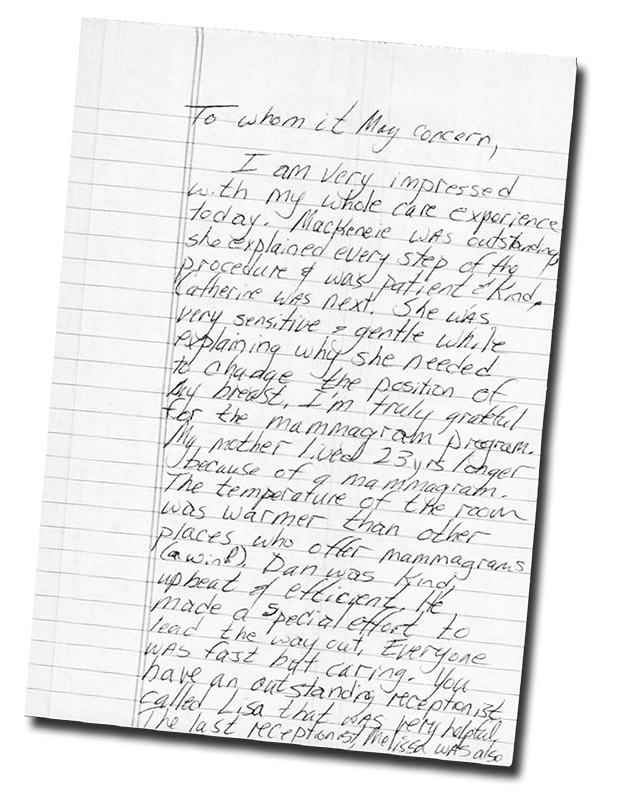 To whom it May concern,
I am very impressed
with my whole care experience
today. MacKeneie was outstanding
she explained every step of the
procedure & was patient & kind,
Catherine was next. She was
very sensitive & gentle while
explaining why she needed
to change the position of
my breast. I'm truly grateful
for the mammagram program.
My mother lived 23 yrs longer
because of a mammagram.
The temperature of the room
was warmer than other
places who offer mammagrams
(a win!). Dan was kind,
upbeat & efficient. He
made a special effort to
lead the way out. Everyone
was fast but caring. You
have an outstanding receptionist
called Lisa that was very helpful.
The last receptionist, Melissa was also